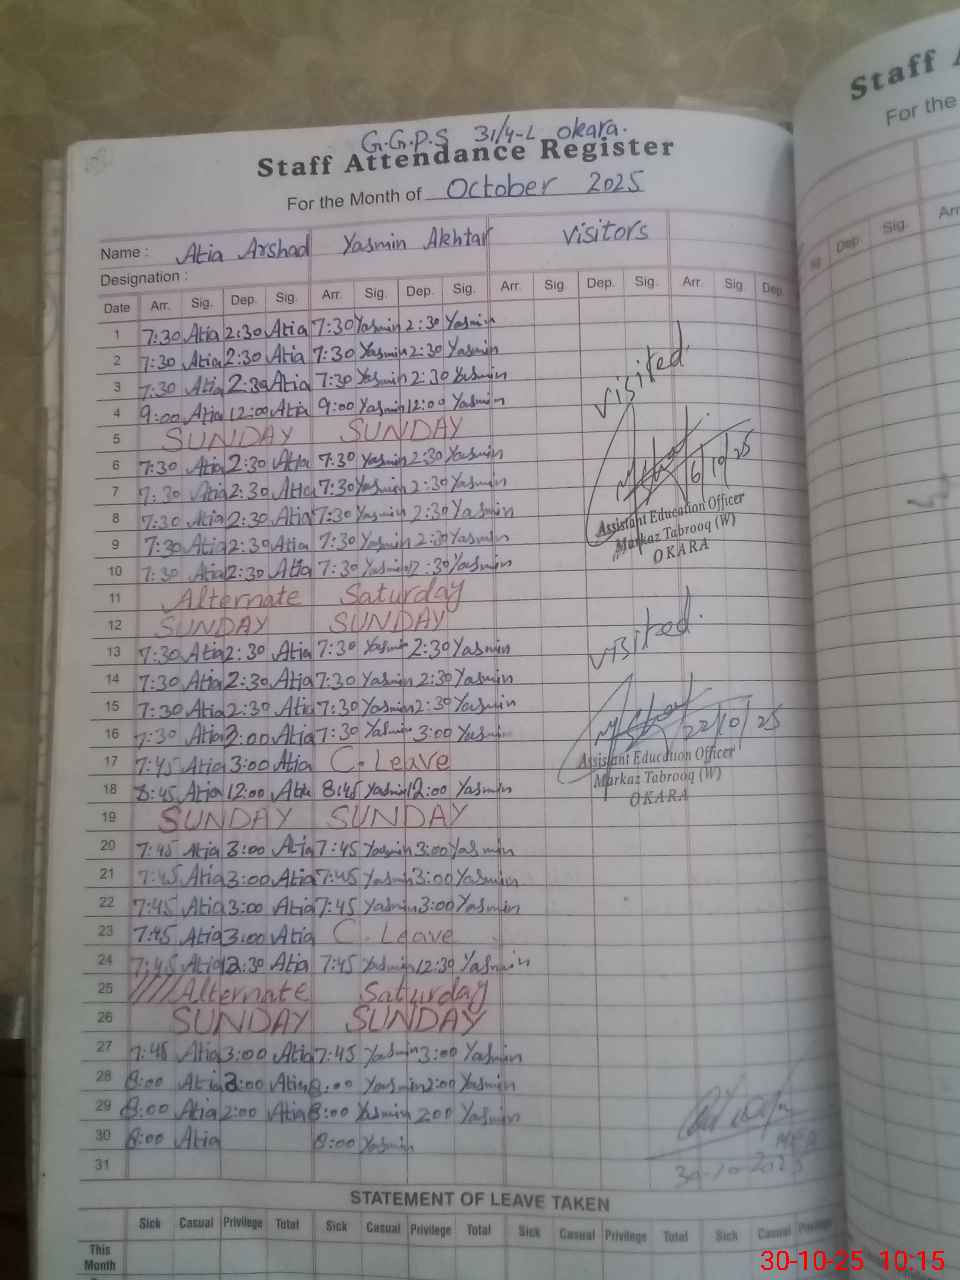 G.G.P.S 31/4-L Okara.
Staff Attendance Register
For the Month of October 2025
Name : Atia Arshad Yasmin Akhtar Visitors
Designation :
Date Arr. Sig. Dep. Sig. Arr. Sig. Dep. Sig. Arr. Sig. Dep. Sig. Arr. Sig. Dep.
1 7:30 Atia 2:30 Atia 7:30 Yasmin 2:30 Yasmin
2 7:30 Atia 2:30 Atia 7:30 Yasmin 2:30 Yasmin
3 7:30 Atia 2:30 Atia 7:30 Yasmin 2:30 Yasmin
visited.
4 9:00 Atia 12:00 Atia 9:00 Yasmin 12:00 Yasmin
5 SUNDAY SUNDAY
6 7:30 Atia 2:30 Atia 7:30 Yasmin 2:30 Yasmin
16/10/25
7 7:30 Atia 2:30 Atia 7:30 Yasmin 2:30 Yasmin
8 7:30 Atia 2:30 Atia 7:30 Yasmin 2:30 Yasmin
Assistant Education Officer
9 7:30 Atia 2:30 Atia 7:30 Yasmin 2:30 Yasmin
Markaz Tabrooq (W)
OKARA
10 7:30 Atia 2:30 Atia 7:30 Yasmin 2:30 Yasmin
11 Alternate Saturday
12 SUNDAY SUNDAY
visited.
13 7:30 Atia 2:30 Atia 7:30 Yasmin 2:30 Yasmin
14 7:30 Atia 2:30 Atia 7:30 Yasmin 2:30 Yasmin
15 7:30 Atia 2:30 Atia 7:30 Yasmin 2:30 Yasmin
22/10/25
16 7:30 Atia 3:00 Atia 7:30 Yasmin 3:00 Yasmin
17 7:45 Atia 3:00 Atia C. Leave
Assistant Education Officer
Markaz Tabrooq (W)
18 8:45 Atia 12:00 Atia 8:45 Yasmin 12:00 Yasmin
OKARA
19 SUNDAY SUNDAY
20 7:45 Atia 3:00 Atia 7:45 Yasmin 3:00 Yasmin
21 7:45 Atia 3:00 Atia 7:45 Yasmin 3:00 Yasmin
22 7:45 Atia 3:00 Atia 7:45 Yasmin 3:00 Yasmin
23 7:45 Atia 3:00 Atia C. Leave
24 7:45 Atia 12:30 Atia 7:45 Yasmin 12:30 Yasmin
25 Alternate Saturday
26 SUNDAY SUNDAY
27 7:45 Atia 3:00 Atia 7:45 Yasmin 3:00 Yasmin
28 8:00 Atia 2:00 Atia 8:00 Yasmin 2:00 Yasmin
29 8:00 Atia 2:00 Atia 8:00 Yasmin 2:00 Yasmin
30 8:00 Atia 8:00 Yasmin
31
30-10-2025
STATEMENT OF LEAVE TAKEN
Sick Casual Privilege Total Sick Casual Privilege Total Sick Casual Privilege Total Sick Casual Privilege
This
Month
Staff
For the
Dep. Sig. Arr
30-10-25 10:15